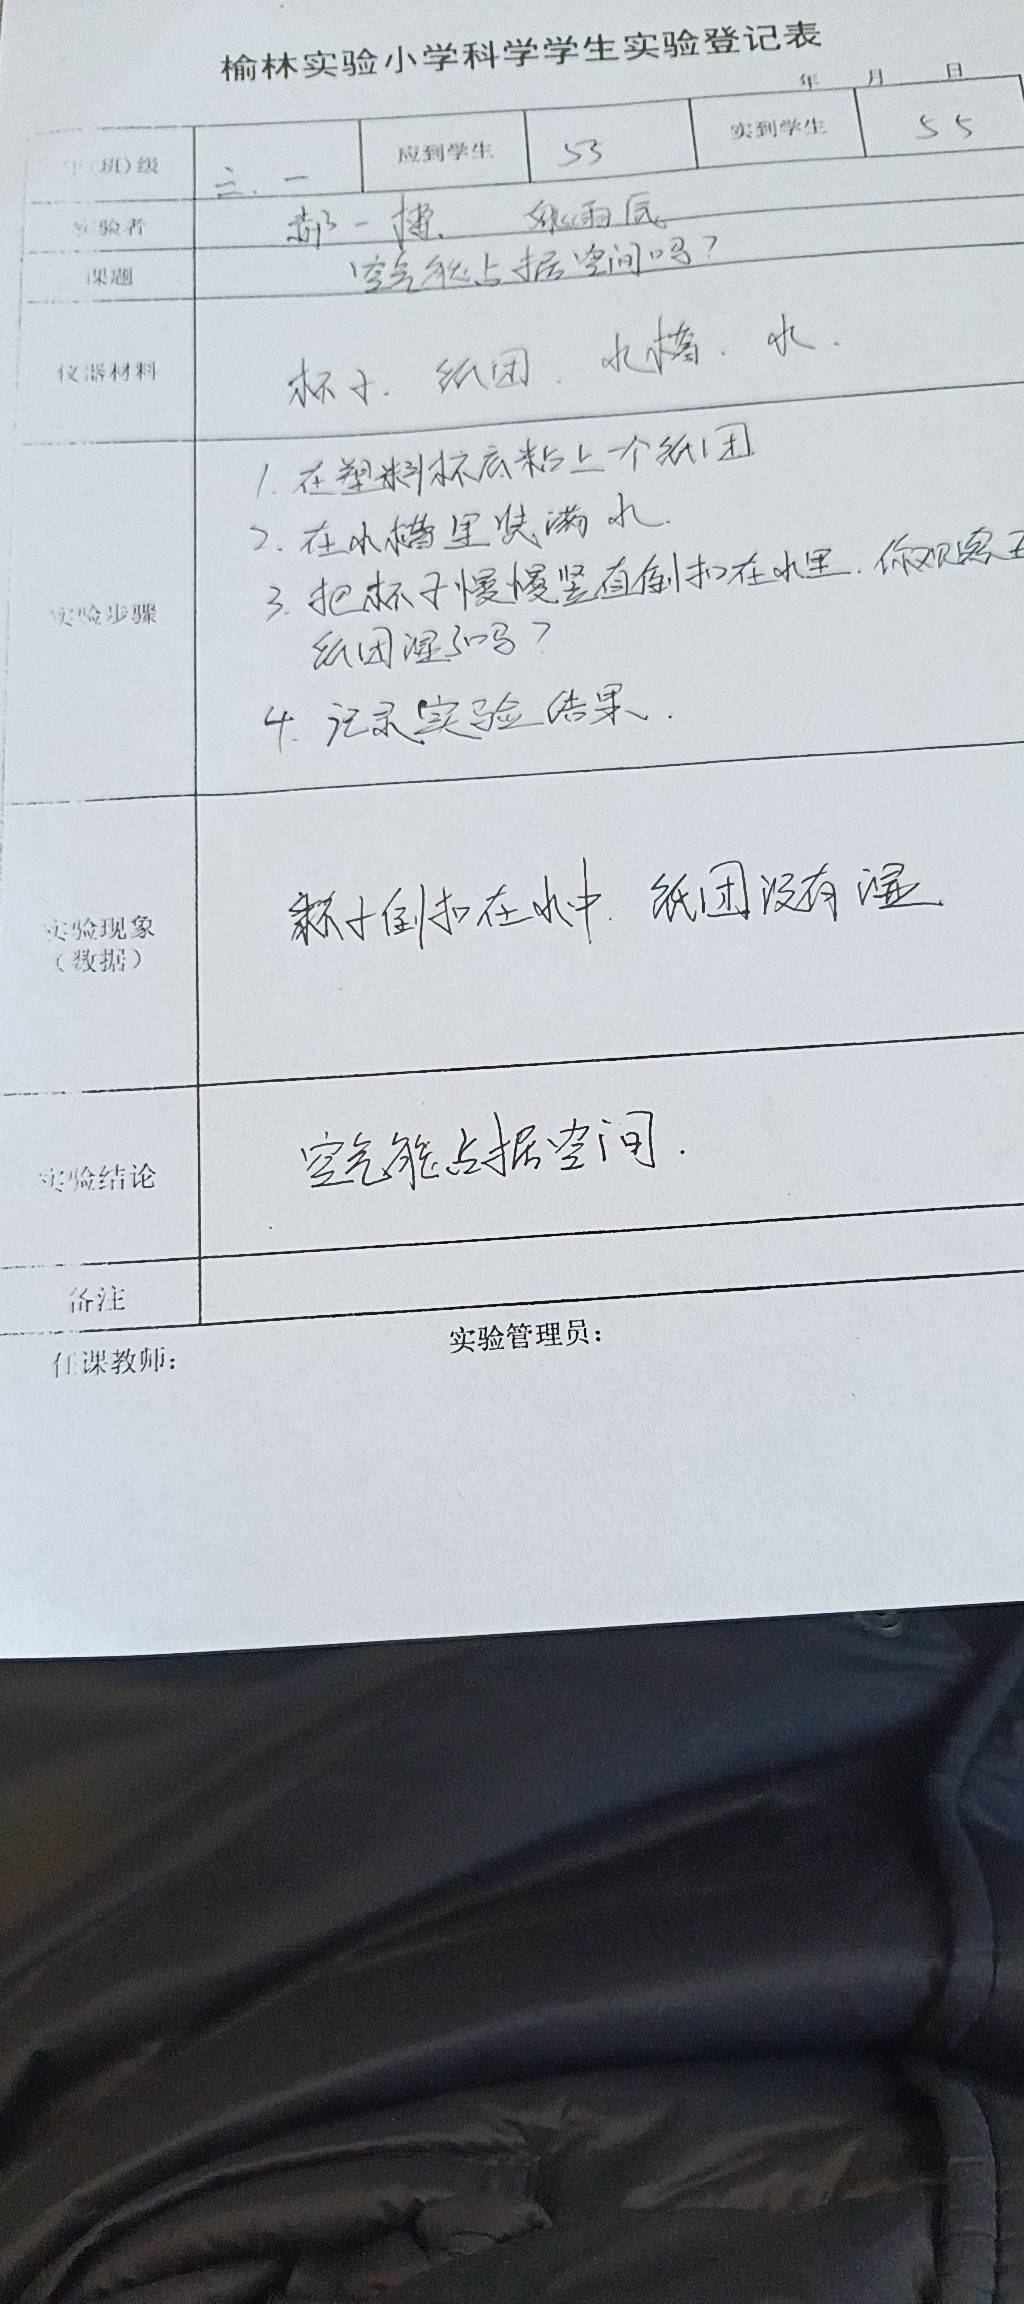 榆林实验小学科学学生实验登记表
年 月 日
年(班)级 三.一 应到学生 53 实到学生 55
实验者 郝一博、
课题 空气能占据空间吗？
仪器材料 杯子、纸团、水槽、水.
1. 在塑料杯底粘上一个纸团
2. 在水槽里装满水.
实验步骤 3. 把杯子慢慢竖直倒扣在水里. 你观察
纸团湿了吗？
4. 记录实验结果.
实验现象 杯子倒扣在水中. 纸团没有湿.
（数据）
实验结论 空气能占据空间.
备注
任课教师： 实验管理员：